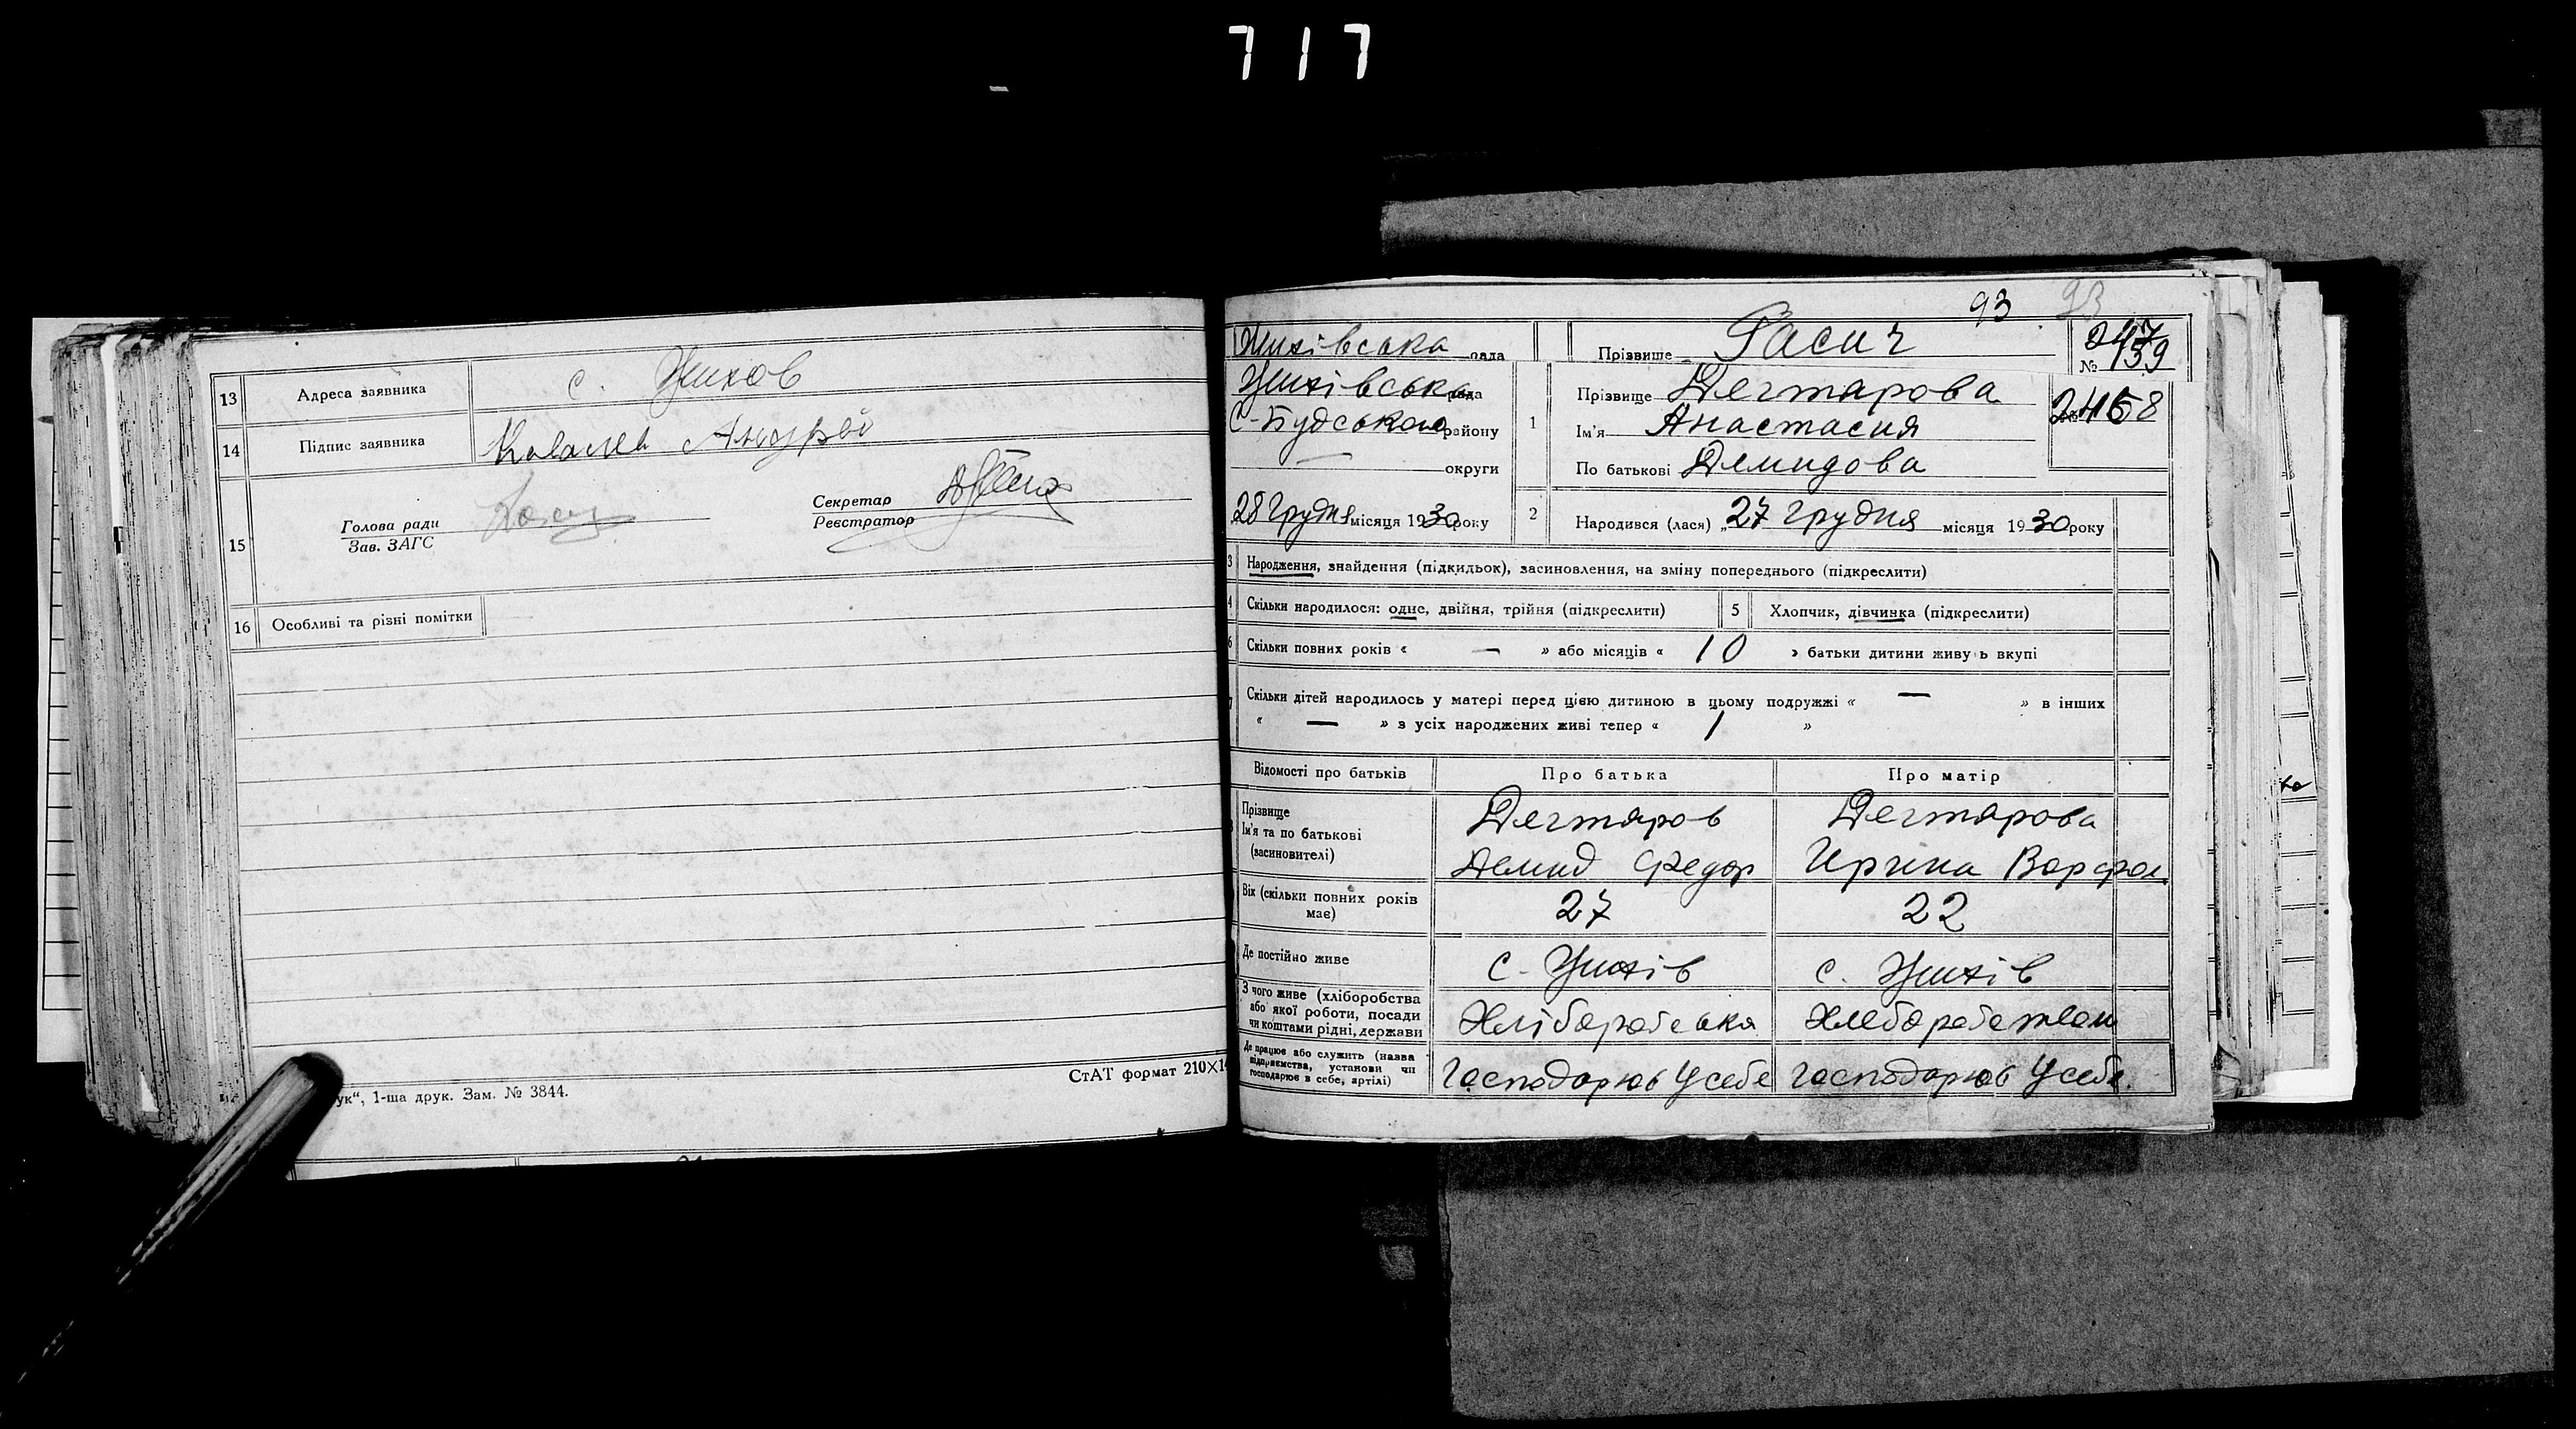 717
13 Адреса заявника с. Жихов
14 Підпис заявника Ковалев Андрей
15 Голова ради
Зав. ЗАГС
Секретар
Реєстратор
16 Особливі та різні помітки
ук“, 1-ша друк. Зам. № 3844.
СтАТ формат 210×14
93 93
Жихівська рада Прізвище Расич № 247 159
Жихівська рада
С-Будського району
округи
28 Грудня місяця 1930 року
1 Прізвище Дегтярова
Ім'я Анастасия
По батькові Демидова
2 Народився (лася) „27 грудня місяця 1930 року
3 Народження, знайдення (підкидьок), засиновлення, на зміну попереднього (підкреслити)
4 Скільки народилося: одне, двійня, трійня (підкреслити) 5 Хлопчик, дівчинка (підкреслити)
6 Скільки повних років « — » або місяців « 10 » батьки дитини живуть вкупі
7 Скільки дітей народилось у матері перед цією дитиною в цьому подружжі « — » в інших
« — » з усіх народжених живі тепер « 1 »
Відомості про батьків Про батька Про матір
Прізвище
Ім'я та по батькові
(засиновителі)
Дегтяров
Демид Федор
Дегтярова
Ирина Варфол
Вік (скільки повних років
має) 27 22
Де постійно живе с. Жихів с. Жихів
З чого живе (хліборобства
або якої роботи, посади
чи коштами рідні, держави
Де працює або служить (назва
підприємства, установи чи
господарює в себе, артілі)
Господарює У себе Господарює У себе.